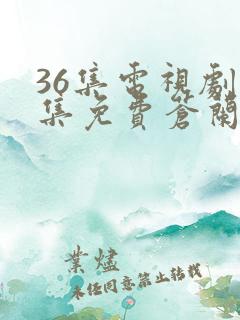 36集電視劇
集免費蒼蘭
業燼
未任同意禁止轉載